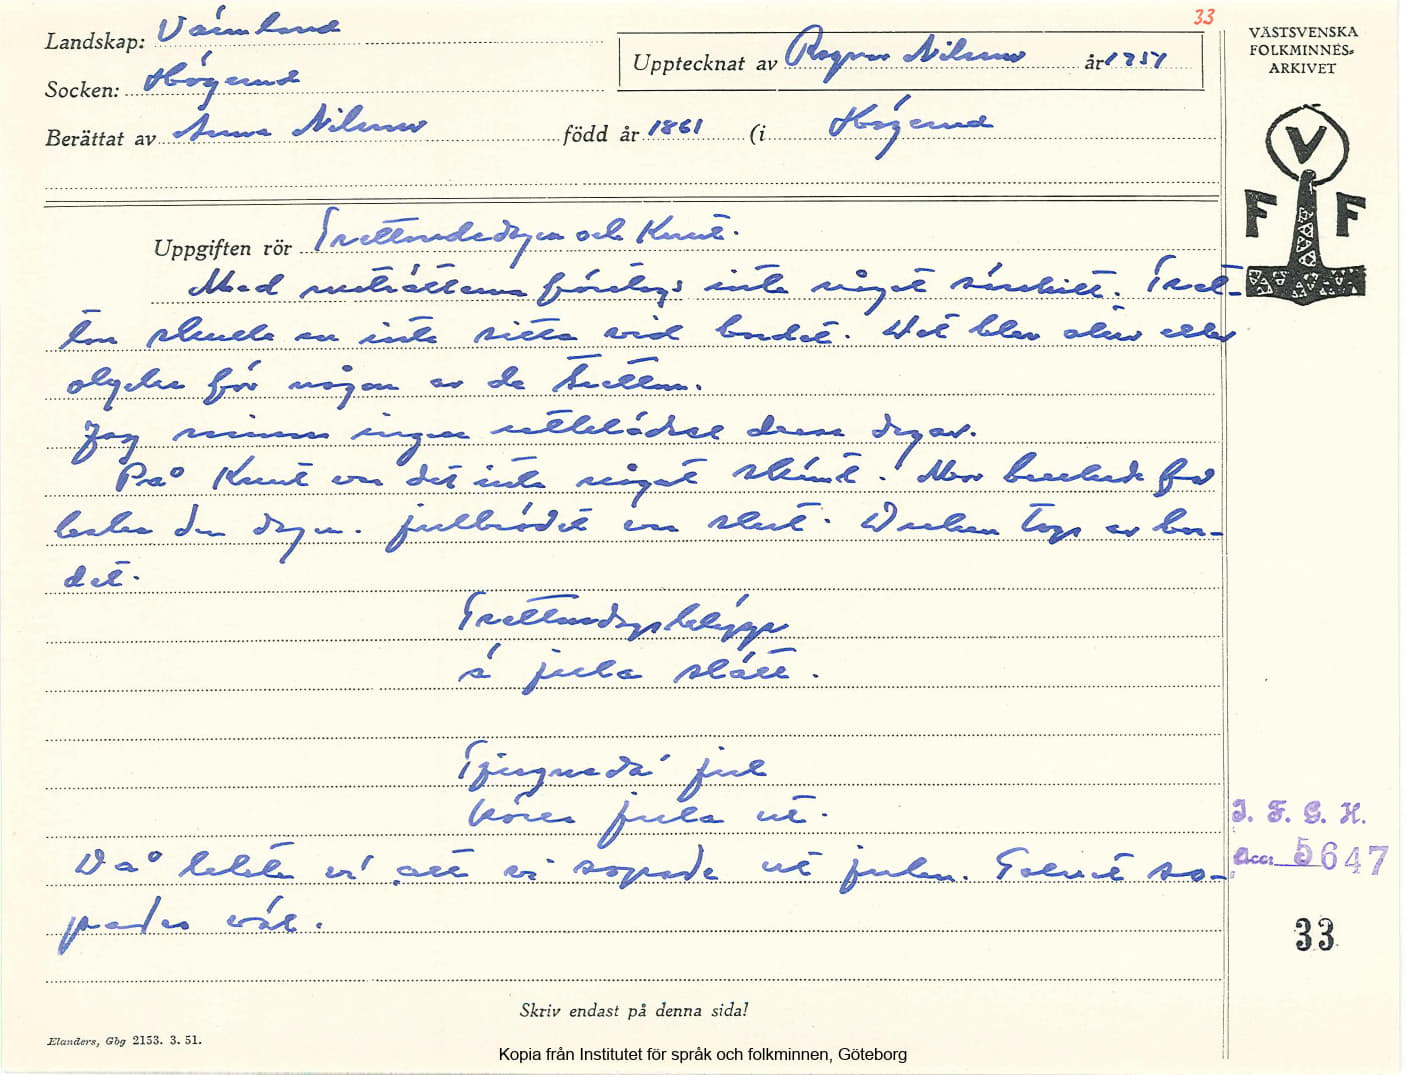 33
Landskap: Värmland
Socken: Högerud
Upptecknat av Ragnar Nilsson år 1951
Berättat av Anna Nilsson född år 1861 (i Högerud
VÄSTSVENSKA
FOLKMINNES-
ARKIVET
V
F F
Uppgiften rör Trettondedagen och Knut.
Med företogs inte något särskilt. Tret-
ton skulle en inte sitta vid bordet. Det blev eller
olycka för någon av de tretton.
Jag minns ingen utklädsel dessa dagar.
På Knut var det inte något skämt. Mor brukade
den dagen. julbrödet var slut. Duken togs av bor-
det.
Trettondagsklippe
ä jula slätt.
Tjugnedä' jul
köres jula ut.
Då lekte vi att vi sopade ut julen. Golvet so-
pades väl.
I. F. G. H.
Acc. 5647
33
Skriv endast på denna sida!
Elanders, Gbg 2153. 3. 51.
Kopia från Institutet för språk och folkminnen, Göteborg